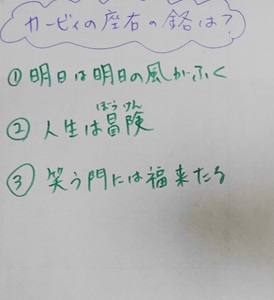 カービィの座右の銘は?
① 明日は明日の風がふく
② 人生は冒険
ぼうけん
③ 笑う門には福来たる